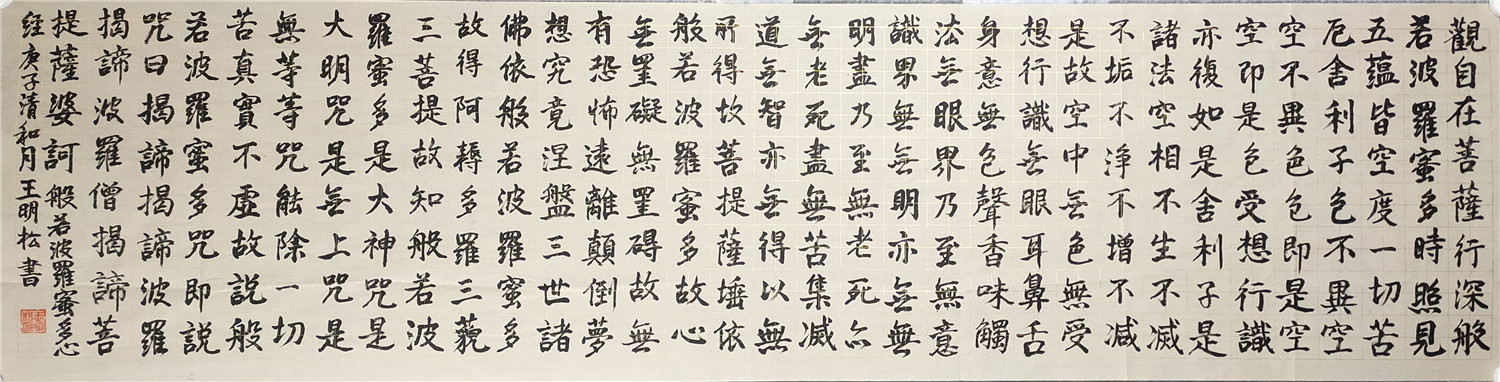 觀自在菩薩行深般
若波羅蜜多時照見
五蘊皆空度一切苦
厄舍利子色不異空
空不異色色即是空
空即是色受想行識
亦復如是舍利子是
諸法空相不生不滅
不垢不淨不增不減
是故空中無色無受
想行識無眼耳鼻舌
身意無色聲香味觸
法無眼界乃至無意
識界無無明亦無無
明盡乃至無老死亦
無老死盡無苦集滅
道無智亦無得以無
所得故菩提薩埵依
般若波羅蜜多故心
無罣礙無罣碍故無
有恐怖遠離顛倒夢
想究竟涅盤三世諸
佛依般若波羅蜜多
故得阿耨多羅三藐
三菩提故知般若波
羅蜜多是大神咒是
大明咒是無上咒是
無等等咒能除一切
苦真實不虛故說般
若波羅蜜多咒即說
咒曰揭諦揭諦波羅
揭諦波羅僧揭諦菩
提薩婆訶 般若波羅蜜多心
経庚子清和月王明松書